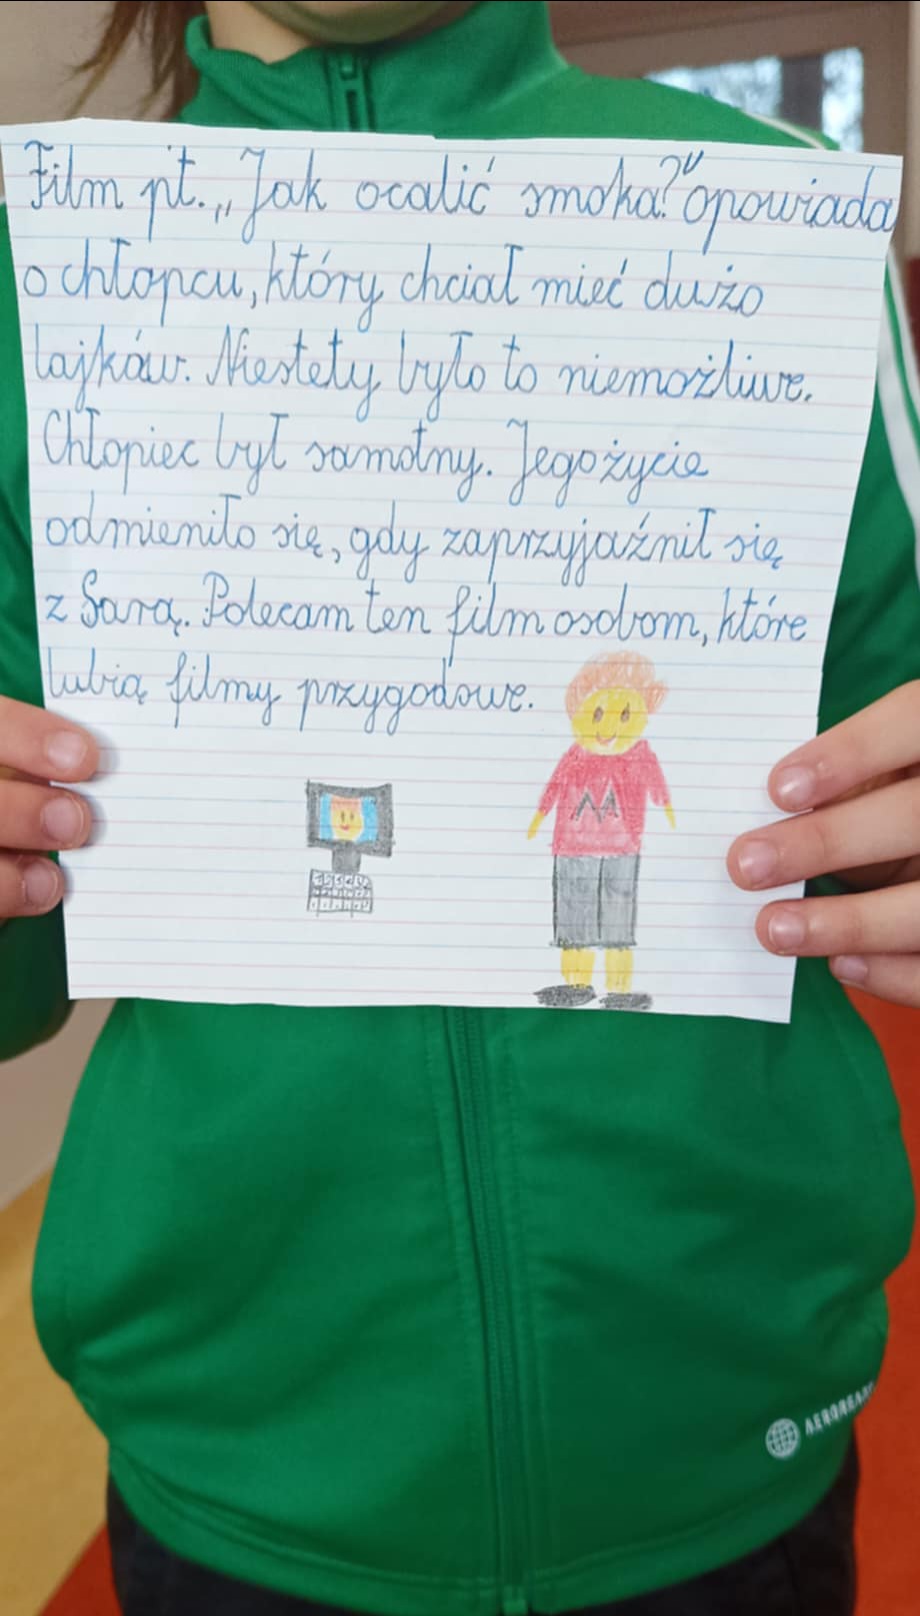 Film pt. „Jak ocalić smoka?" opowiada
o chłopcu, który chciał mieć dużo
lajków. Niestety było to niemożliwe.
Chłopiec był samotny. Jego życie
odmieniło się, gdy zaprzyjaźnił się
z Sarą. Polecam ten film osobom, które
lubią filmy przygodowe.
M
AEROREADY